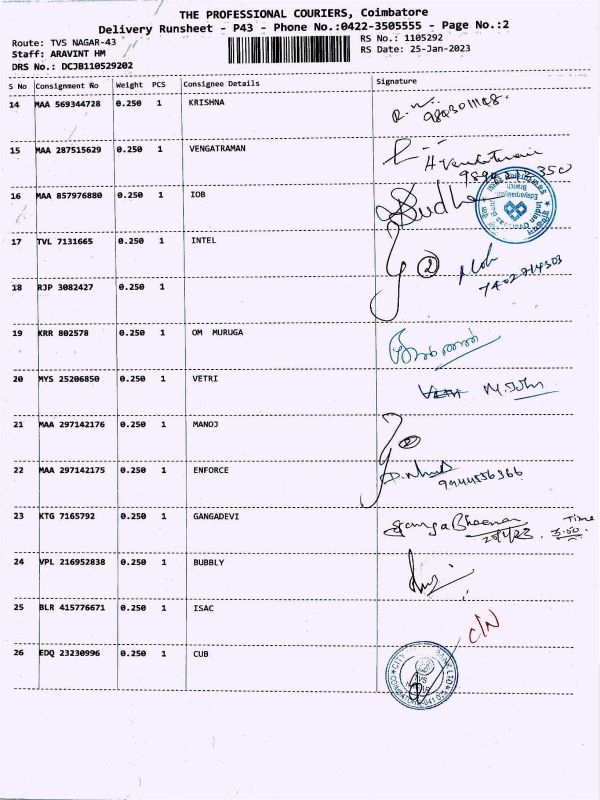 THE PROFESSIONAL COURIERS, Coimbatore
Delivery Runsheet - P43 - Phone No.:0422-3505555 - Page No.:2
Route: TVS NAGAR-43 RS No.: 1105292
Staff: ARAVINT HM RS Date: 25-Jan-2023
DRS No.: DCJB110529202
S No Consignment No Weight PCS Consignee Details Signature
14 MAA 569344728 0.250 1 KRISHNA
15 MAA 287515629 0.250 1 VENGATRAMAN
16 MAA 857976880 0.250 1 IOB Sudha
17 TVL 7131665 0.250 1 INTEL 2
18 RJP 3082427 0.250 1
19 KRR 802578 0.250 1 OM MURUGA
20 MYS 25206850 0.250 1 VETRI
21 MAA 297142176 0.250 1 MANOJ 2
22 MAA 297142175 0.250 1 ENFORCE
23 KTG 7165792 0.250 1 GANGADEVI Time
24 VPL 216952838 0.250 1 BUBBLY
25 BLR 415776671 0.250 1 ISAC C/N
26 EDQ 23230996 0.250 1 CUB